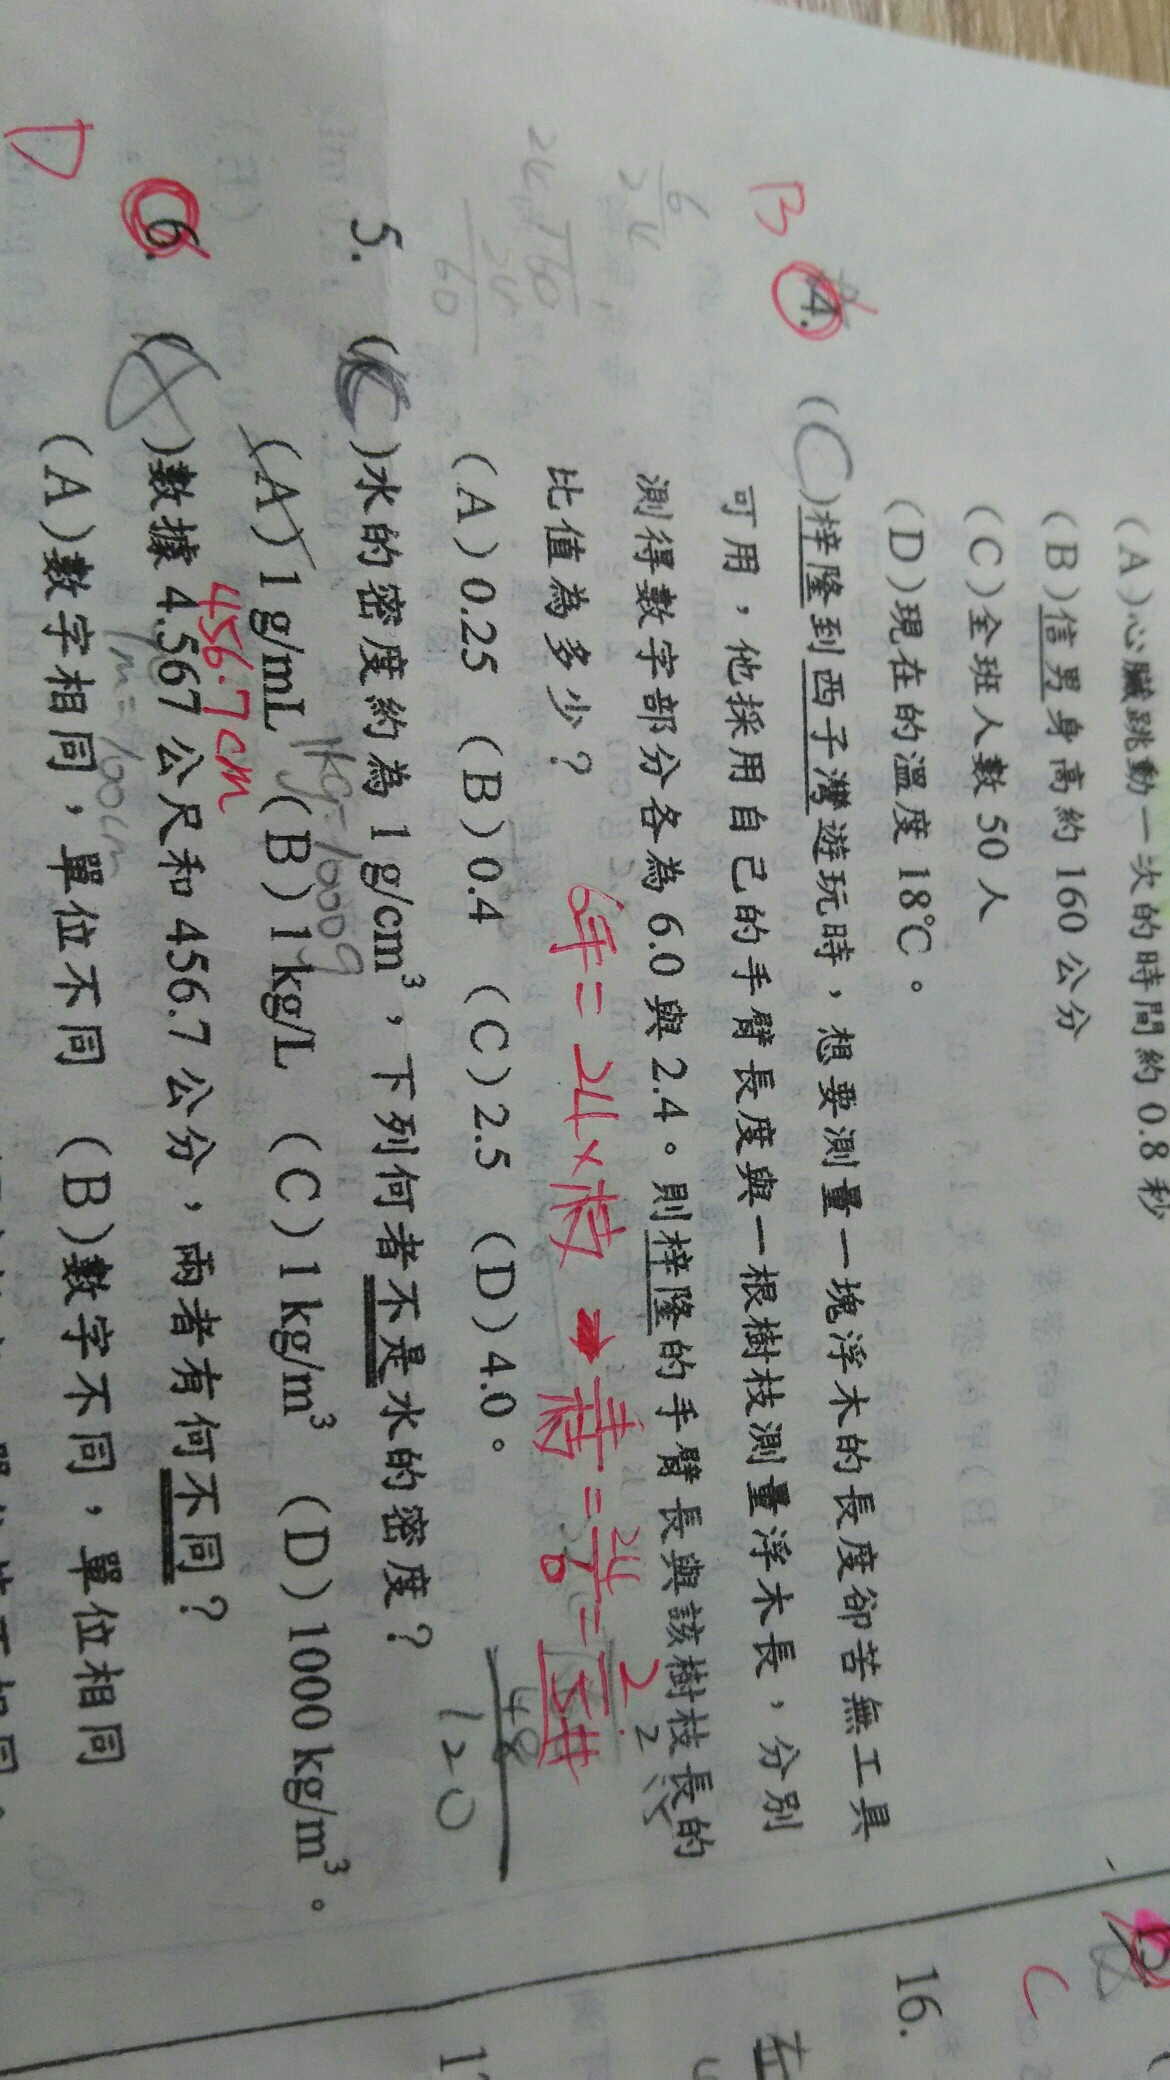 (A)心臟跳動一次的時間約 0.8 秒
(B)信男身高約 160 公分
(C)全班人數 50 人
(D)現在的溫度 18℃。
B 4. (C)梓隆到西子灣遊玩時，想要測量一塊浮木的長度卻苦無工具
可用，他採用自己的手臂長度與一根樹枝測量浮木長，分別
測得數字部分各為 6.0 與 2.4。則梓隆的手臂長與該樹枝長的
比值為多少？
6手=24×枝 → 手/枝=24/6=2/5#
(A)0.25 (B)0.4 (C)2.5 (D)4.0。
48
120
6
24
24 60
24
60
5. (C)水的密度約為 1 g/cm³，下列何者不是水的密度？
1kg=1000g
(A)1 g/mL (B)1 kg/L (C)1 kg/m³ (D)1000 kg/m³。
456.7cm
D 6. ( )數據 4.567 公尺和 456.7 公分，兩者有何不同？
1m=100cm
(A)數字相同，單位不同 (B)數字不同，單位相同
C
16.
左